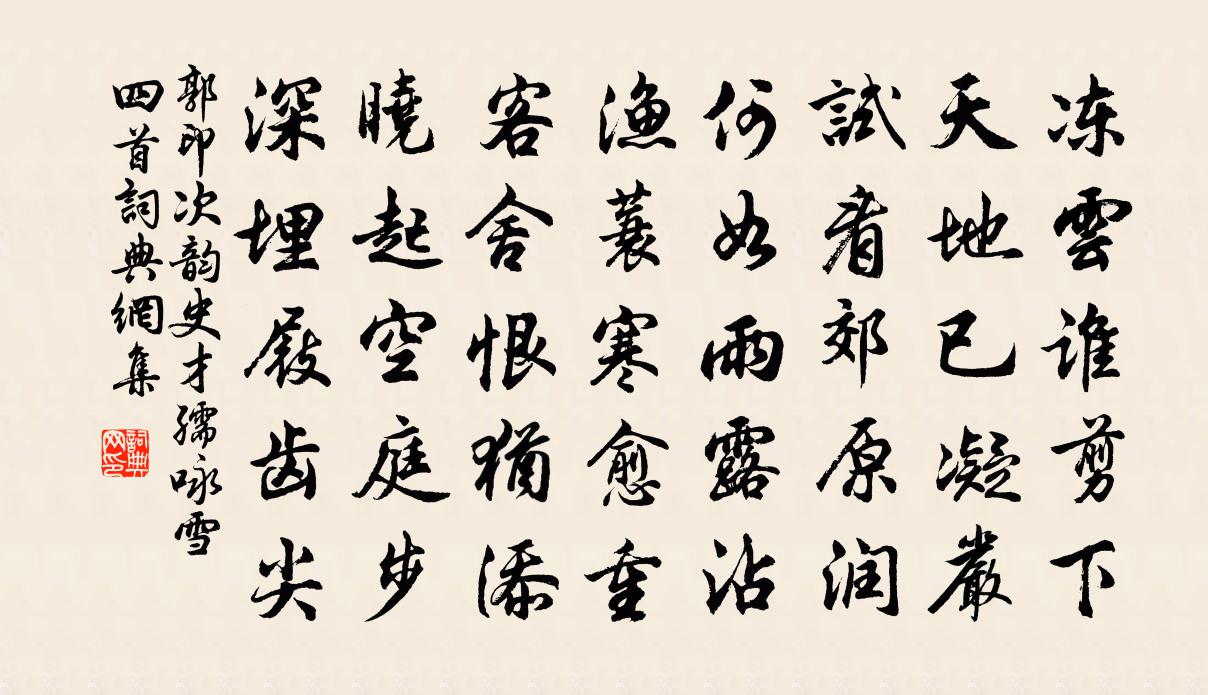 冻雲谁剪下
天地已凝嚴
試看郊原润
何如雨露沾
漁蓑寒愈重
客舍恨猶添
曉起空庭步
深埋屐齿尖
郭印次韵史才孺咏雪
四首詞典網集
詞典网印